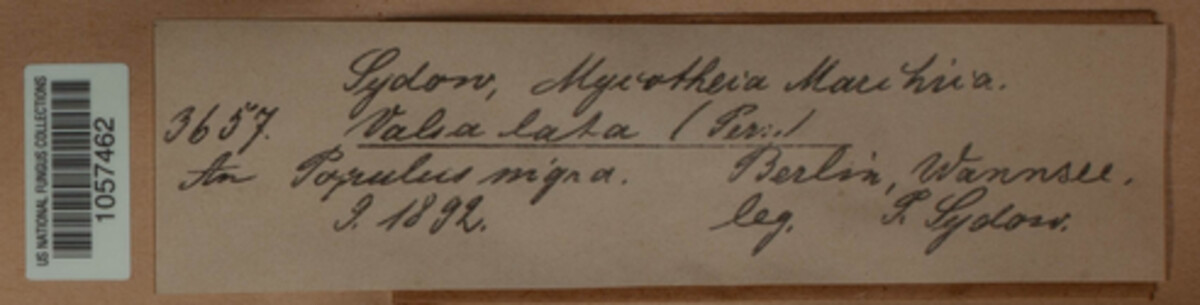 US NATIONAL FUNGUS COLLECTIONS
1057462
Sydow, Mycotheia Marchica.
3657. Valsa lata (Pers.)
An Populus nigra. Berlin, Wannsee.
9. 1892. leg. P. Sydow.